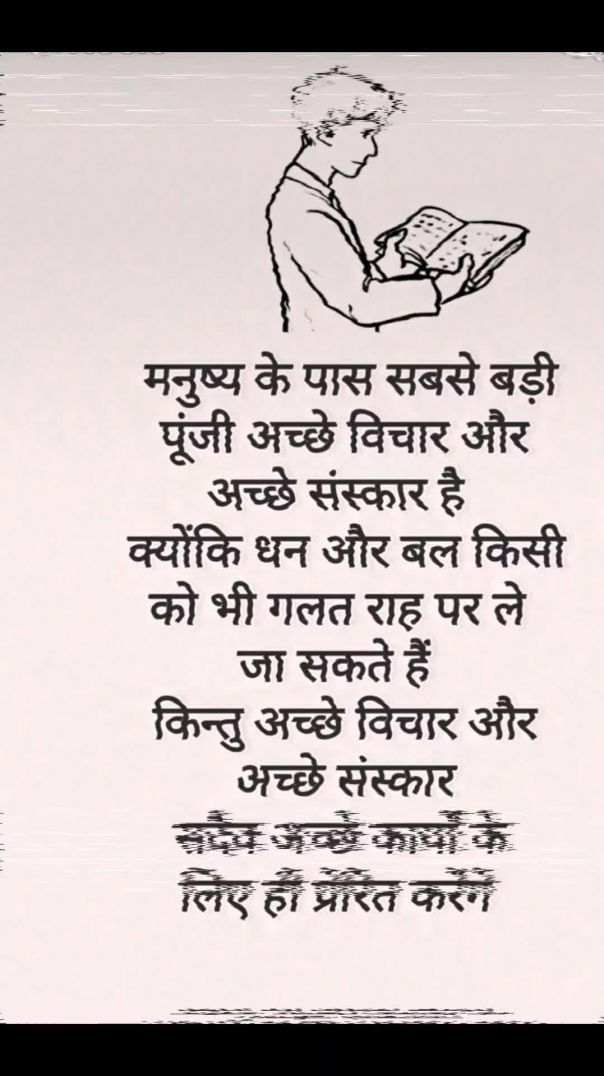 मनुष्य के पास सबसे बड़ी
पूंजी अच्छे विचार और
अच्छे संस्कार है
क्योंकि धन और बल किसी
को भी गलत राह पर ले
जा सकते हैं
किन्तु अच्छे विचार और
अच्छे संस्कार
सदैव अच्छे कार्यों के
लिए ही प्रेरित करेंगे